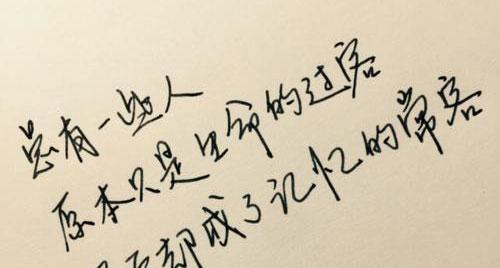 总有一些人
原本只是生命的过客
却成了记忆的常客